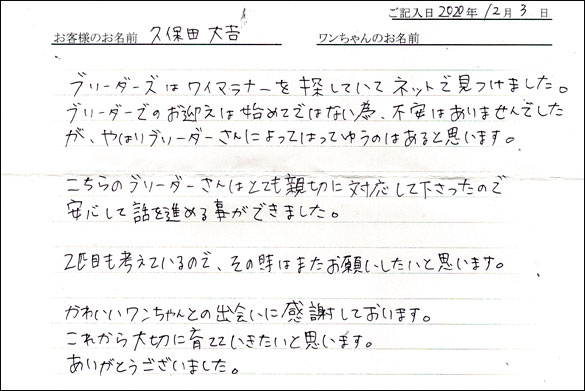 ご記入日 2020年 12月 3日
お客様のお名前 久保田 大吉 ワンちゃんのお名前
ブリーダーズはワイマラナーを探していてネットで見つけました。
ブリーダーでのお迎えは始めてではない為、不安はありませんでした
が、やはりブリーダーさんによってはっていゆうのはあると思います。
こちらのブリーダーさんはとても親切に対応して下さったので
安心して話を進める事ができました。
2匹目も考えているので、その時はまたお願いしたいと思います。
かわいいワンちゃんとの出会いに感謝しております。
これから大切に育ていきたいと思います。
ありがとうございました。